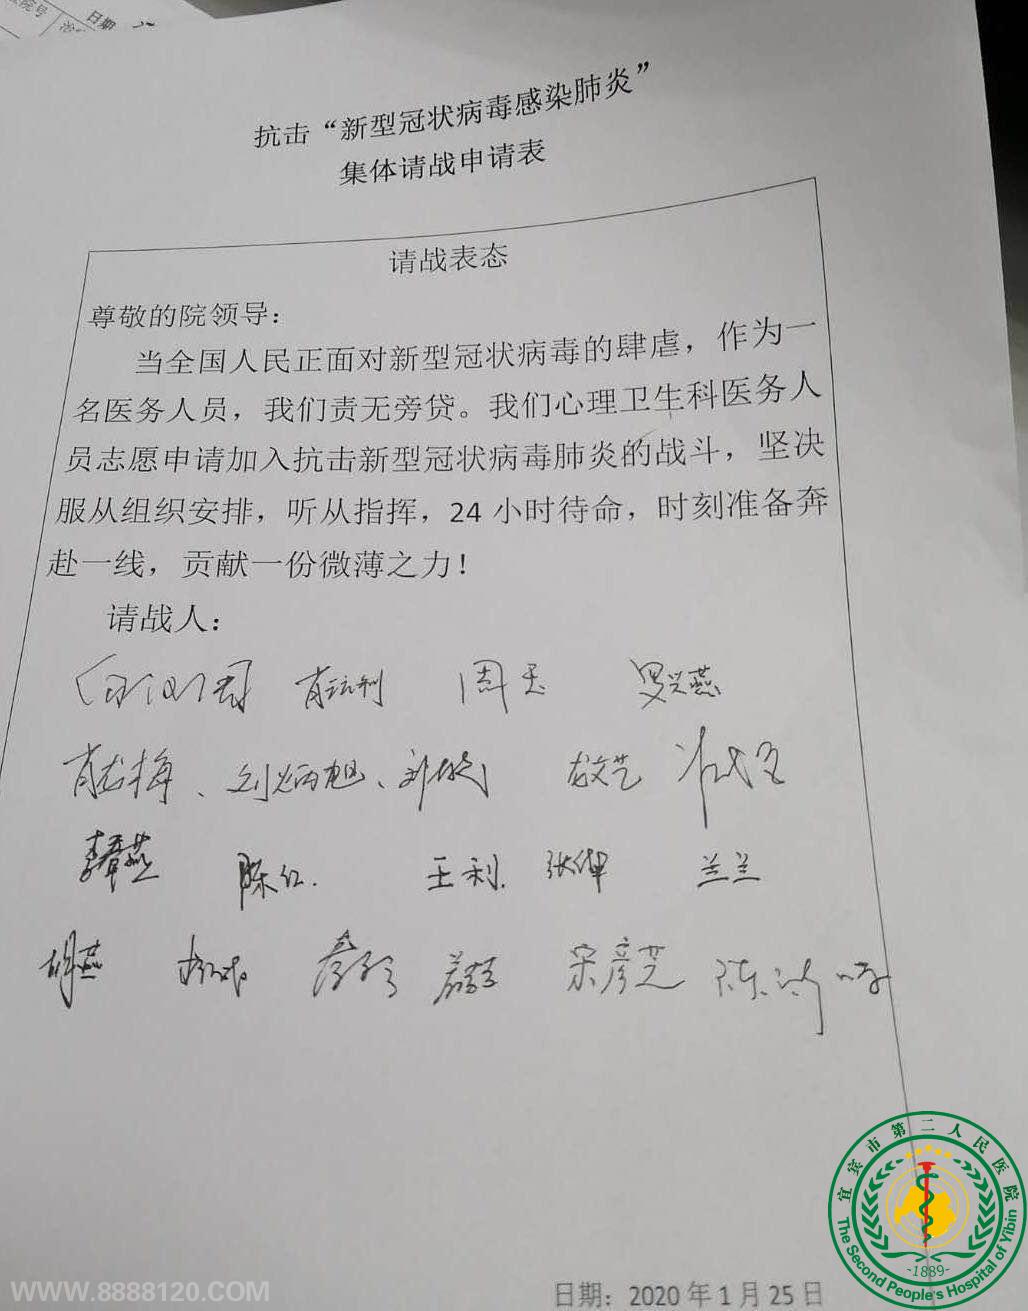 院号
日期
抗击“新型冠状病毒感染肺炎”
集体请战申请表
请战表态
尊敬的院领导：
当全国人民正面对新型冠状病毒的肆虐，作为一
名医务人员，我们责无旁贷。我们心理卫生科医务人
员志愿申请加入抗击新型冠状病毒肺炎的战斗，坚决
服从组织安排，听从指挥，24 小时待命，时刻准备奔
赴一线，贡献一份微薄之力！
请战人：
周玉 罗兴燕
肖龙梅、刘炳旭、 龙文艺
李章燕 陈红. 王利. 张婵 兰兰
胡燕 宋彦芝
宜宾市第二人民医院
The Second People's Hospital of Yibin
-1889-
WWW.8888120.COM
日期：2020 年 1 月 25 日